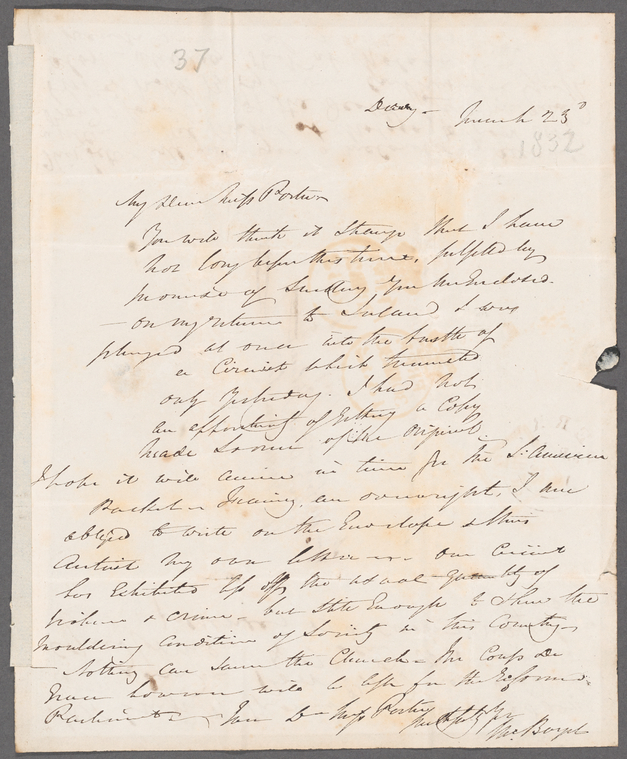 37
Derry - March 23d
1832
My dear Miss Porter
You will think it strange that I have
not long before this time, fulfilled my
promise of sending you the Enclosed.
- on my return to Ireland I was
plunged at once into the bustle of
a Circuit which terminated
only yesterday. I had not
an opportunity of getting a Copy
made sooner of the original
I hope it will arrive in time for the S. American
Packet - an oversight, I am
obliged to write on the Envelope & thus
my own letter - Our Circuit
has Exhibited less of the usual quantity of
& crime - but still Enough to shew the
mouldering Condition of Society in this Country -
- Nothing can save the Church - the Coup de
Grace however will be left for the Reformed
Parliament - Your Dr Miss Porter
faithfully yrs